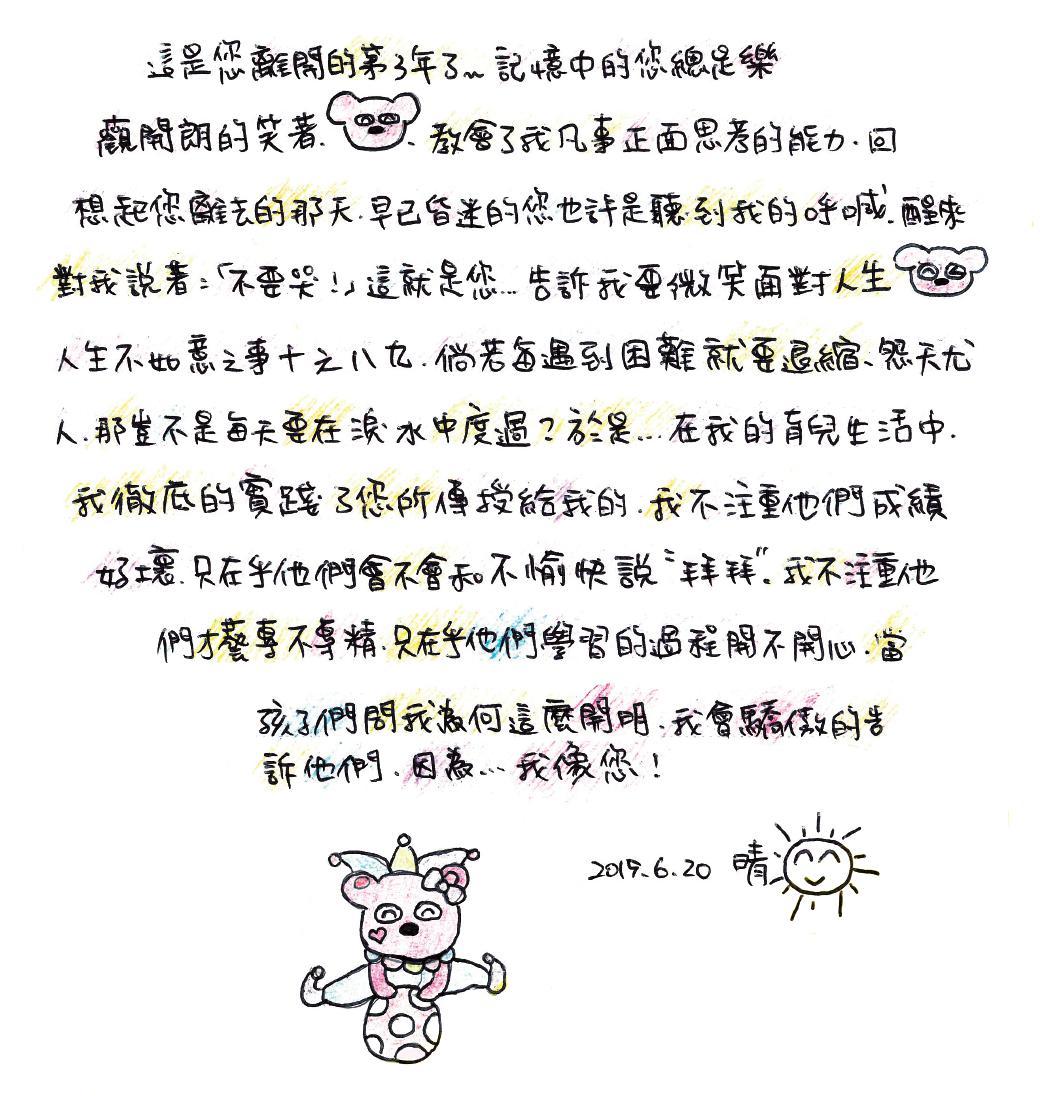 這是您離開的第3年了~記憶中的您總是樂
觀開朗的笑著、教會了我凡事正面思考的能力.回
想起您離去的那天.早已昏迷的您也許是聽到我的呼喊.醒來
對我說著:「不要哭!」這就是您...告訴我要微笑面對人生
人生不如意之事十之八九.倘若每遇到困難就要退縮、怨天尤
人.那豈不是每天要在淚水中度過?於是...在我的育兒生活中.
我徹底的實踐了您所傳授給我的.我不注重他們成績
好壞.只在乎他們會不會和不愉快說"拜拜".我不注重他
們才藝專不專精.只在乎他們學習的過程開不開心.當
孩子們問我為何這麼開明.我會驕傲的告
訴他們.因為...我像您!
2019.6.20 晴